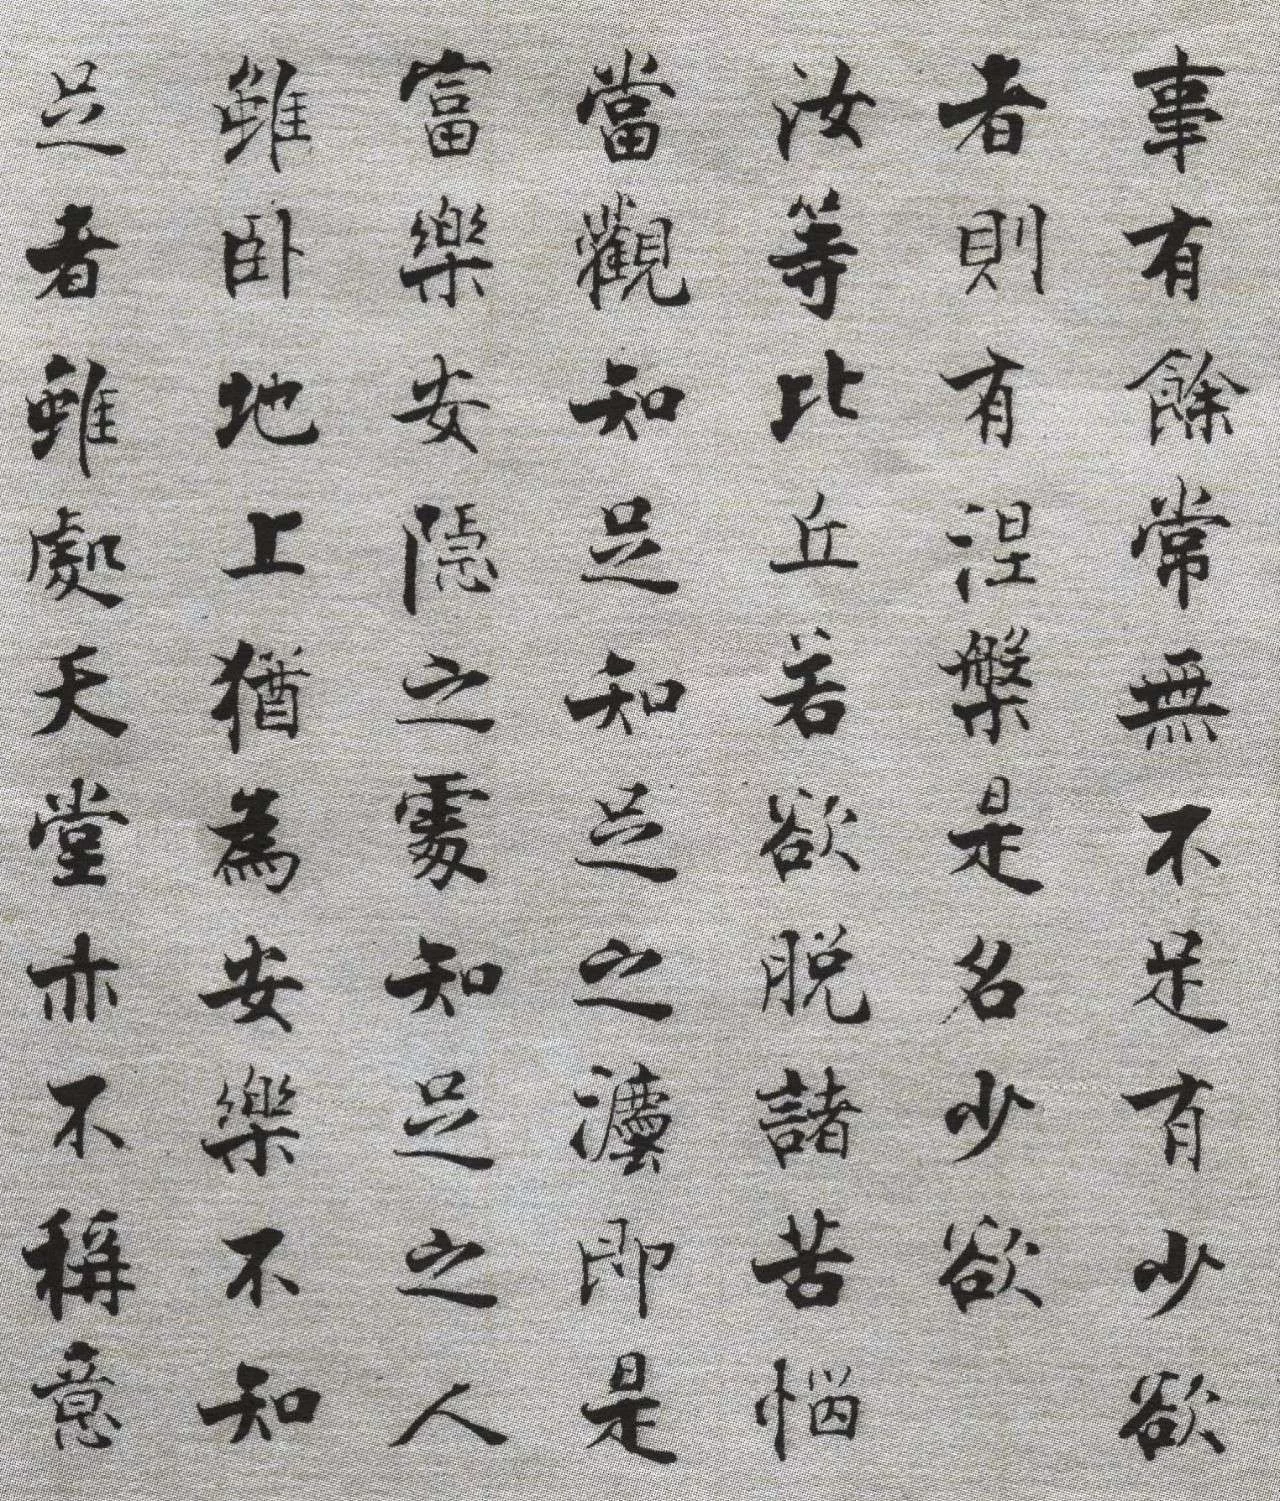 事有餘常無不足有少欲
者則有涅槃是名少欲
汝等比丘若欲脱諸苦惱
當觀知足知足之法即是
富樂安隱之處知足之人
雖卧地上猶為安樂不知
足者雖處天堂亦不稱意